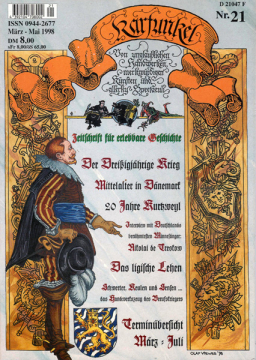 D 21047 F
ISSN 0944-2677
März - Mai 1998
DM 8,00
sFr 8,00/ÖS 65,00
Karfunkel
Nr. 21
Von unglaublichen
Handwerken,
merkwürdigen
Künsten und
allerley Spectacul
Zeitschrift für erlebbare Geschichte
Der Dreißigjährige Krieg
Mittelalter in Dänemark
20 Jahre Kurtzweyl
Interview mit Deutschlands
berühmtestem Minnesänger:
Nikolai de Treskow
Das ligische Lehen
Schwerter, Keulen und Sensen ...
das Handwerkszeug des Berufskriegers
Terminübersicht
März - Juli
OLAF VRENSE '98